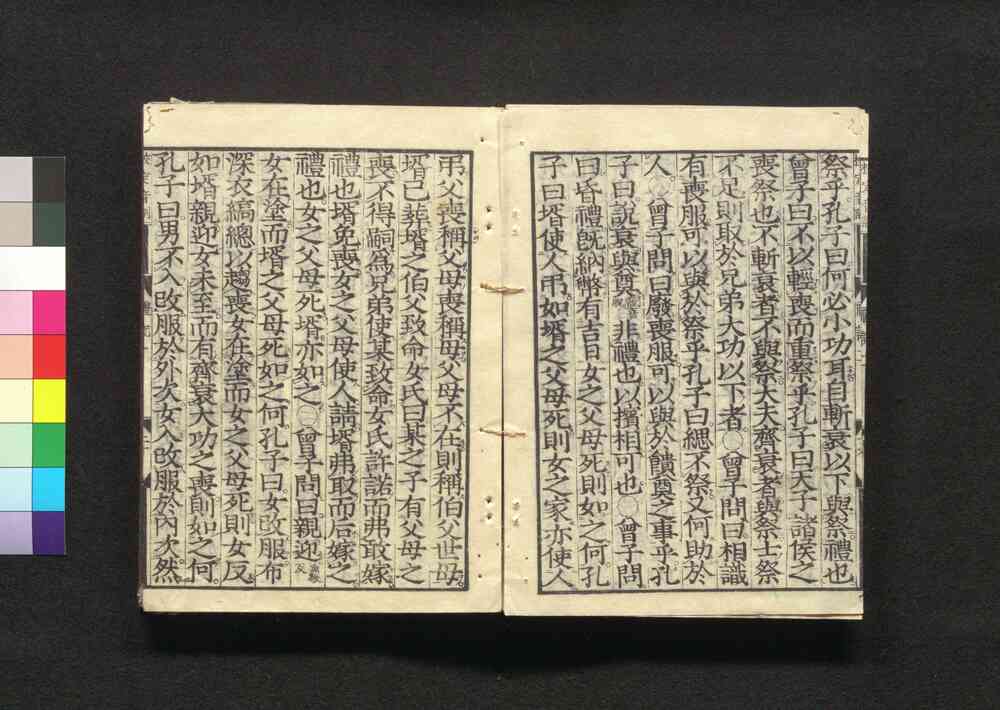 祭乎孔子曰何必小功耳自斬衰以下與祭禮也
曾子曰不以輕喪而重祭乎孔子曰天子諸侯之
喪祭也不斬衰者不與祭大夫齊衰者與祭士祭
不足則取於兄弟大功以下者○曾子問曰相識
有喪服可以與於祭乎孔子曰緦不祭又何助於
人○曾子問曰廢喪服可以與於饋奠之事乎孔
子曰說衰與奠非禮也以擯相可也○曾子問
曰昏禮既納幣有吉日女之父母死則如之何孔
子曰壻使人吊如壻之父母死則女之家亦使人
吊父喪稱父母喪稱母父母不在則稱伯父世母
壻已葬壻之伯父致命女氏曰某之子有父母之
喪不得嗣爲兄弟使某致命女氏許諾而弗敢嫁
禮也壻免喪女之父母使人請壻弗取而后嫁之
禮也女之父母死壻亦如之○曾子問曰親迎
女在塗而壻之父母死如之何孔子曰女改服布
深衣縞總以趨喪女在塗而女之父母死則女反
如壻親迎女未至而有齊衰大功之喪則如之何
孔子曰男不入改服於外次女入改服於內次然